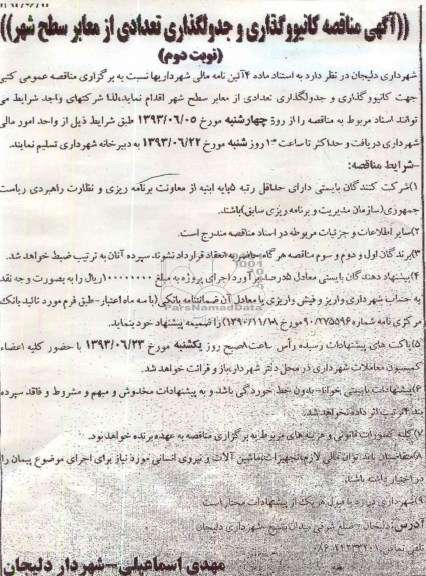 ((آگهی مناقصه کانیوگذاری و جدولگذاری تعدادی از معابر سطح شهر))
(نوبت دوم)
شهرداری دلیجان در نظر دارد به استناد ماده ۴آئین نامه مالی شهرداریها نسبت به برگزاری مناقصه عمومی کتبی
جهت کانیوو گذاری و جدولگذاری تعدادی از معابر سطح شهر اقدام نماید،لذا شرکتهای واجد شرایط می
توانند اسناد مربوط به مناقصه را از روز چهارشنبه مورخ ۱۳۹۳/۰۶/۰۵ طبق شرایط ذیل از واحد امور مالی
شهرداری دریافت و حداکثر تا ساعت ۱۰روز شنبه مورخ ۱۳۹۳/۰۶/۲۲ به دبیرخانه شهرداری تسلیم نمایند.
-شرایط مناقصه:
۱)شرکت کنندگان بایستی دارای حداقل رتبه ۵پایه ابنیه از معاونت برنامه ریزی و نظارت راهبردی ریاست
جمهوری(سازمان مدیریت و برنامه ریزی سابق)باشند.
۲)سایر اطلاعات و جزئیات مربوطه در اسناد مناقصه مندرج است.
۳)برندگان اول و دوم و سوم مناقصه هرگاه حاضر به انعقاد قرارداد نشوند سپرده آنان به ترتیب ضبط خواهد شد.
۴)پیشنهاد دهندگان بایستی معادل ۵درصد برآورد اجرای پروژه به مبلغ ۱۰۰۰۰۰۰۰۰ریال را به بصورت وجه نقد
به حساب شهرداری واریز و فیش واریزی یا معادل آن ضمانتنامه بانکی(با سه ماه اعتبار-طبق فرم مورد تائید بانک
مرکزی نامه شماره ۹۰/۲۷۵۵۹۶مورخ ۱۳۹۰/۱۱/۱۸)را ضمیمه پیشنهاد خود بنماید.
۵)پاکت های پیشنهادات رسیده رأس ساعت ۸صبح روز یکشنبه مورخ ۱۳۹۳/۰۶/۲۳ با حضور کلیه اعضاء
کمیسیون معاملات شهرداری در محل دفتر شهردار،باز و قرائت خواهد شد.
۶)پیشنهادات بایستی خوانا،بدون خط خوردگی باشد و به پیشنهادات مخدوش و مبهم و مشروط و فاقد سپرده
بند ۴ترتیب اثر داده نخواهد شد.
۷)کلیه کسورات قانونی و هزینه های مربوط به برگزاری مناقصه به عهده برنده خواهد بود.
۸)متقاضیان باید توان مالی لازم،تجهیزات،ماشین آلات و نیروی انسانی مورد نیاز برای اجرای موضوع پیمان را
در اختیار داشته باشند.
۹)شهرداری در رد یا قبول هر یک از پیشنهادات مختار است
آدرس: دلیجان - ضلع شرقی میدان بسیج -شهرداری دلیجان
تلفن تماس:
مهدی اسماعیلی -شهردار دلیجان